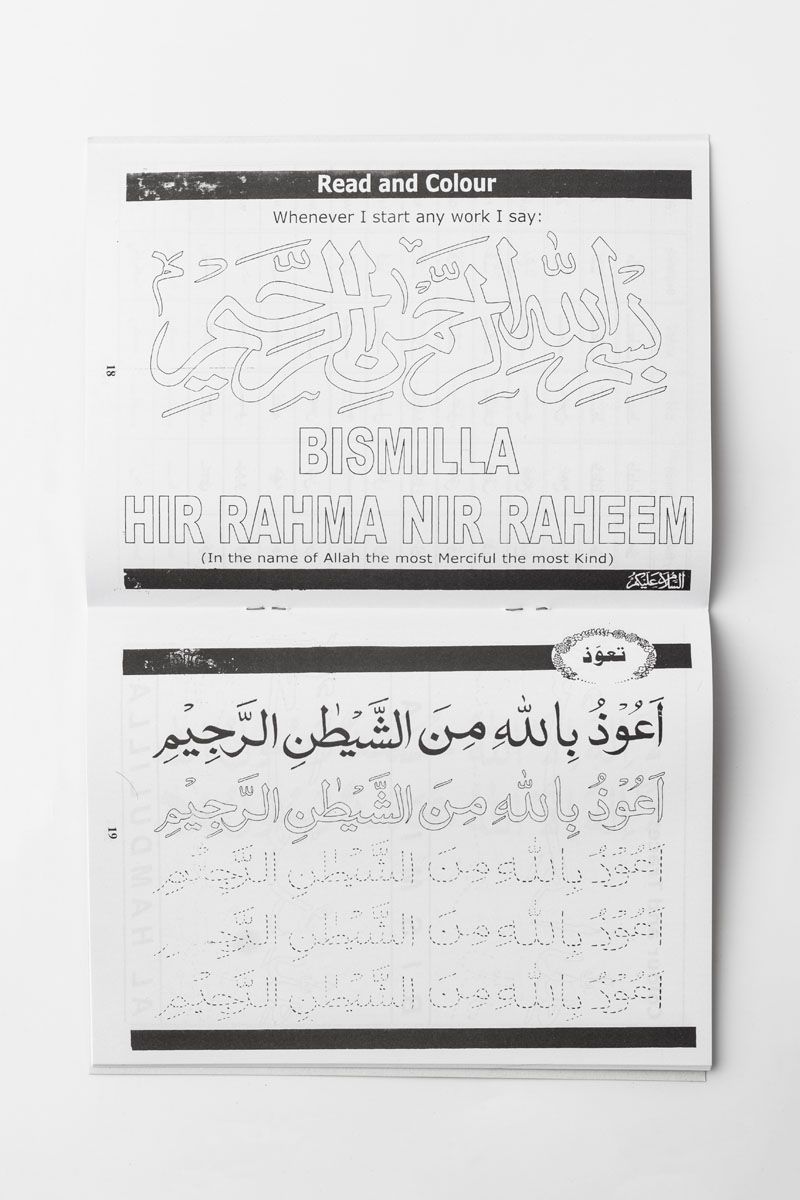 Read and Colour
Whenever I start any work I say:
بِسْمِ اللهِ الرَّحْمٰنِ الرَّحِيْمِ
BISMILLA
HIR RAHMA NIR RAHEEM
(In the name of Allah the most Merciful the most Kind)
السلام عليكم
18
تعوّذ
اَعُوْذُ بِاللهِ مِنَ الشَّيْطٰنِ الرَّجِيْمِ
اَعُوْذُ بِاللهِ مِنَ الشَّيْطٰنِ الرَّجِيْمِ
اَعُوْذُ بِاللهِ مِنَ الشَّيْطٰنِ الرَّجِيْمِ
اَعُوْذُ بِاللهِ مِنَ الشَّيْطٰنِ الرَّجِيْمِ
اَعُوْذُ بِاللهِ مِنَ الشَّيْطٰنِ الرَّجِيْمِ
19